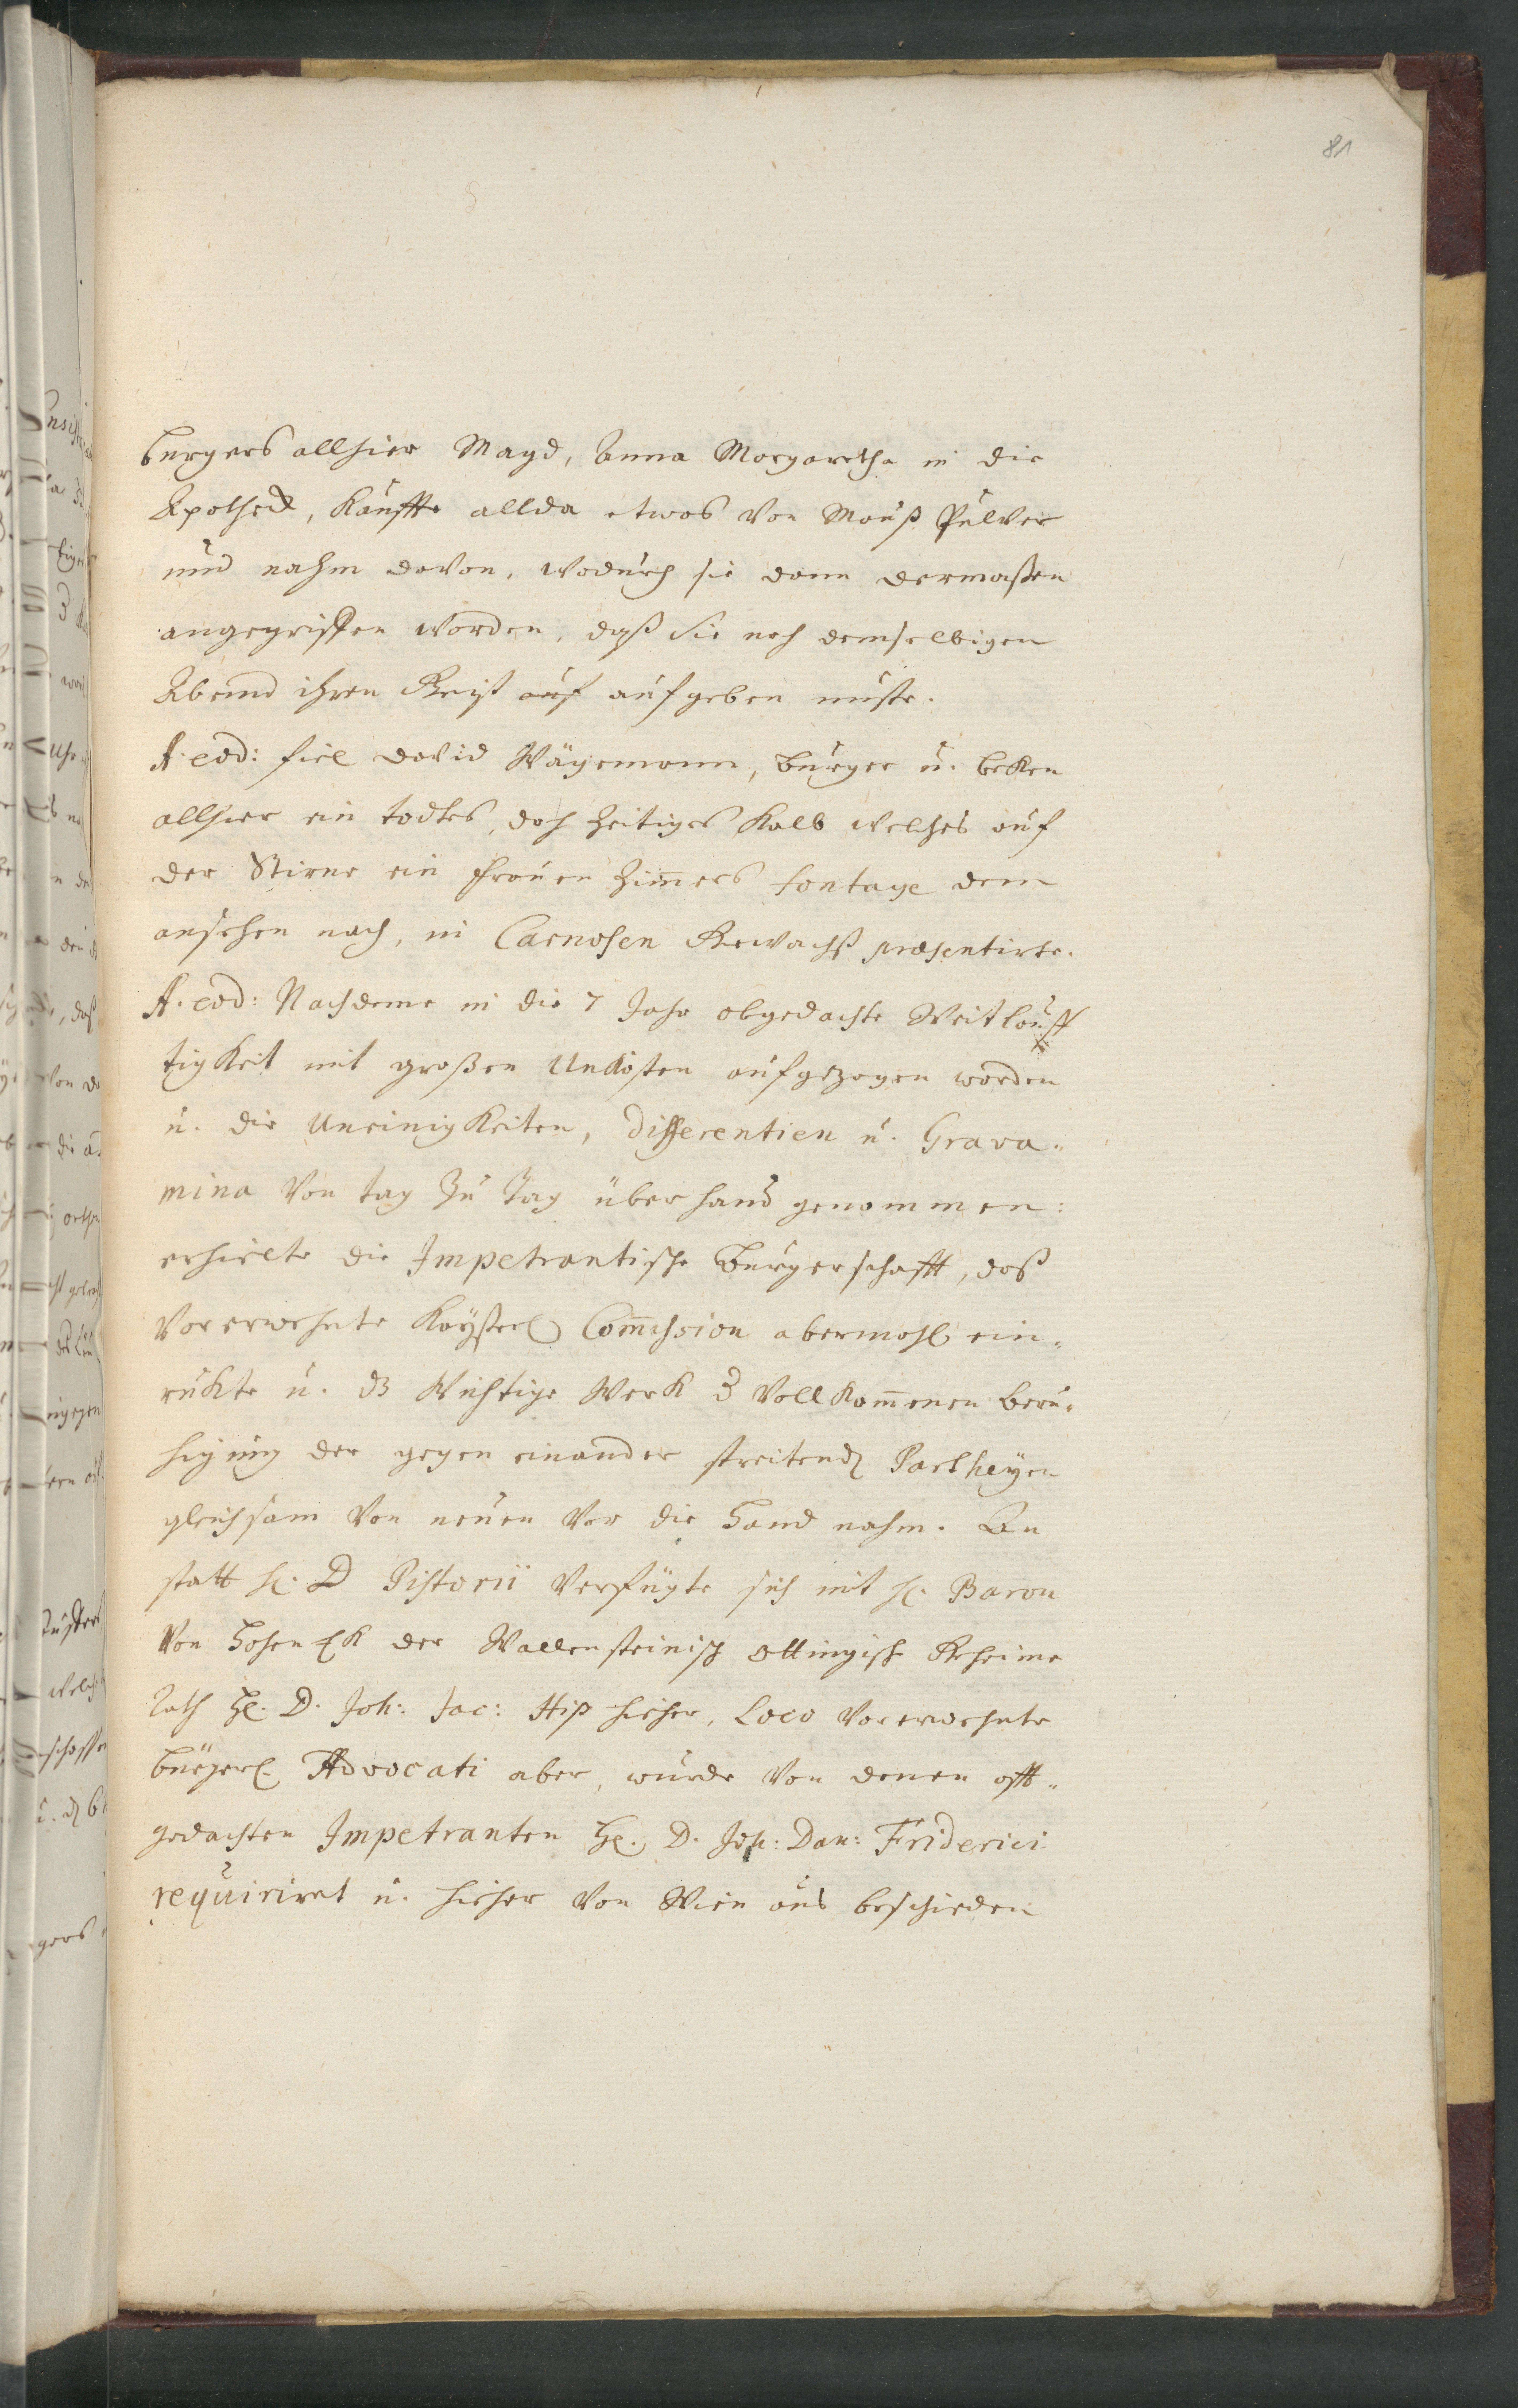 81
burgers allhier Magd, Anna Margaretha in die
Apotheck, kauffte allda etwas von Mauß Pulver
und nahm davon, wodurch sie dann dermaßen
angegriffen worden, daß sie noch demselbigen
Abend ihren Geist auf aufgeben muste.
A. eod: fiel David Wägemann, burger u. becken
allhier ein todtes, doch zeitiges Kalb welches auf
der Stirne ein Frauen Zimmers fontage dem
ansehen nach, in Carnosen Gewächß præsentirte.
A. eod: Nachdeme in die 7 Jahr obgedachte Weitläuff
tigkeit mit großen Unkosten aufgezogen worden
u. die Uneinigkeiten, Differentien u. Grava-
mina von tag zu Tag überhand genommen:
erhielte die Impetrantische burgerschafft, daß
vorerwehnte Kayserl Com̅ission abermahl ein-
rukte u. dz wichtige Werk z vollkom̅enen beru-
higung der gegen einander streitend Partheyen
gleichsam von neuen vor die Hand nahm. An
statt H. D Pistorii verfügte sich mit H. Baron
von Hohen Ek der Wallensteinisch ottingisch Geheime
Rath H. D. Joh: Jac: Hip hieher, Loco vorerwehnte
bürgerl. Advocati aber, wurde von denen offt-
gedachten Impetranten H. D. Joh: Dan: Friderici
requiriret u. hieher von Wien aus beschieden